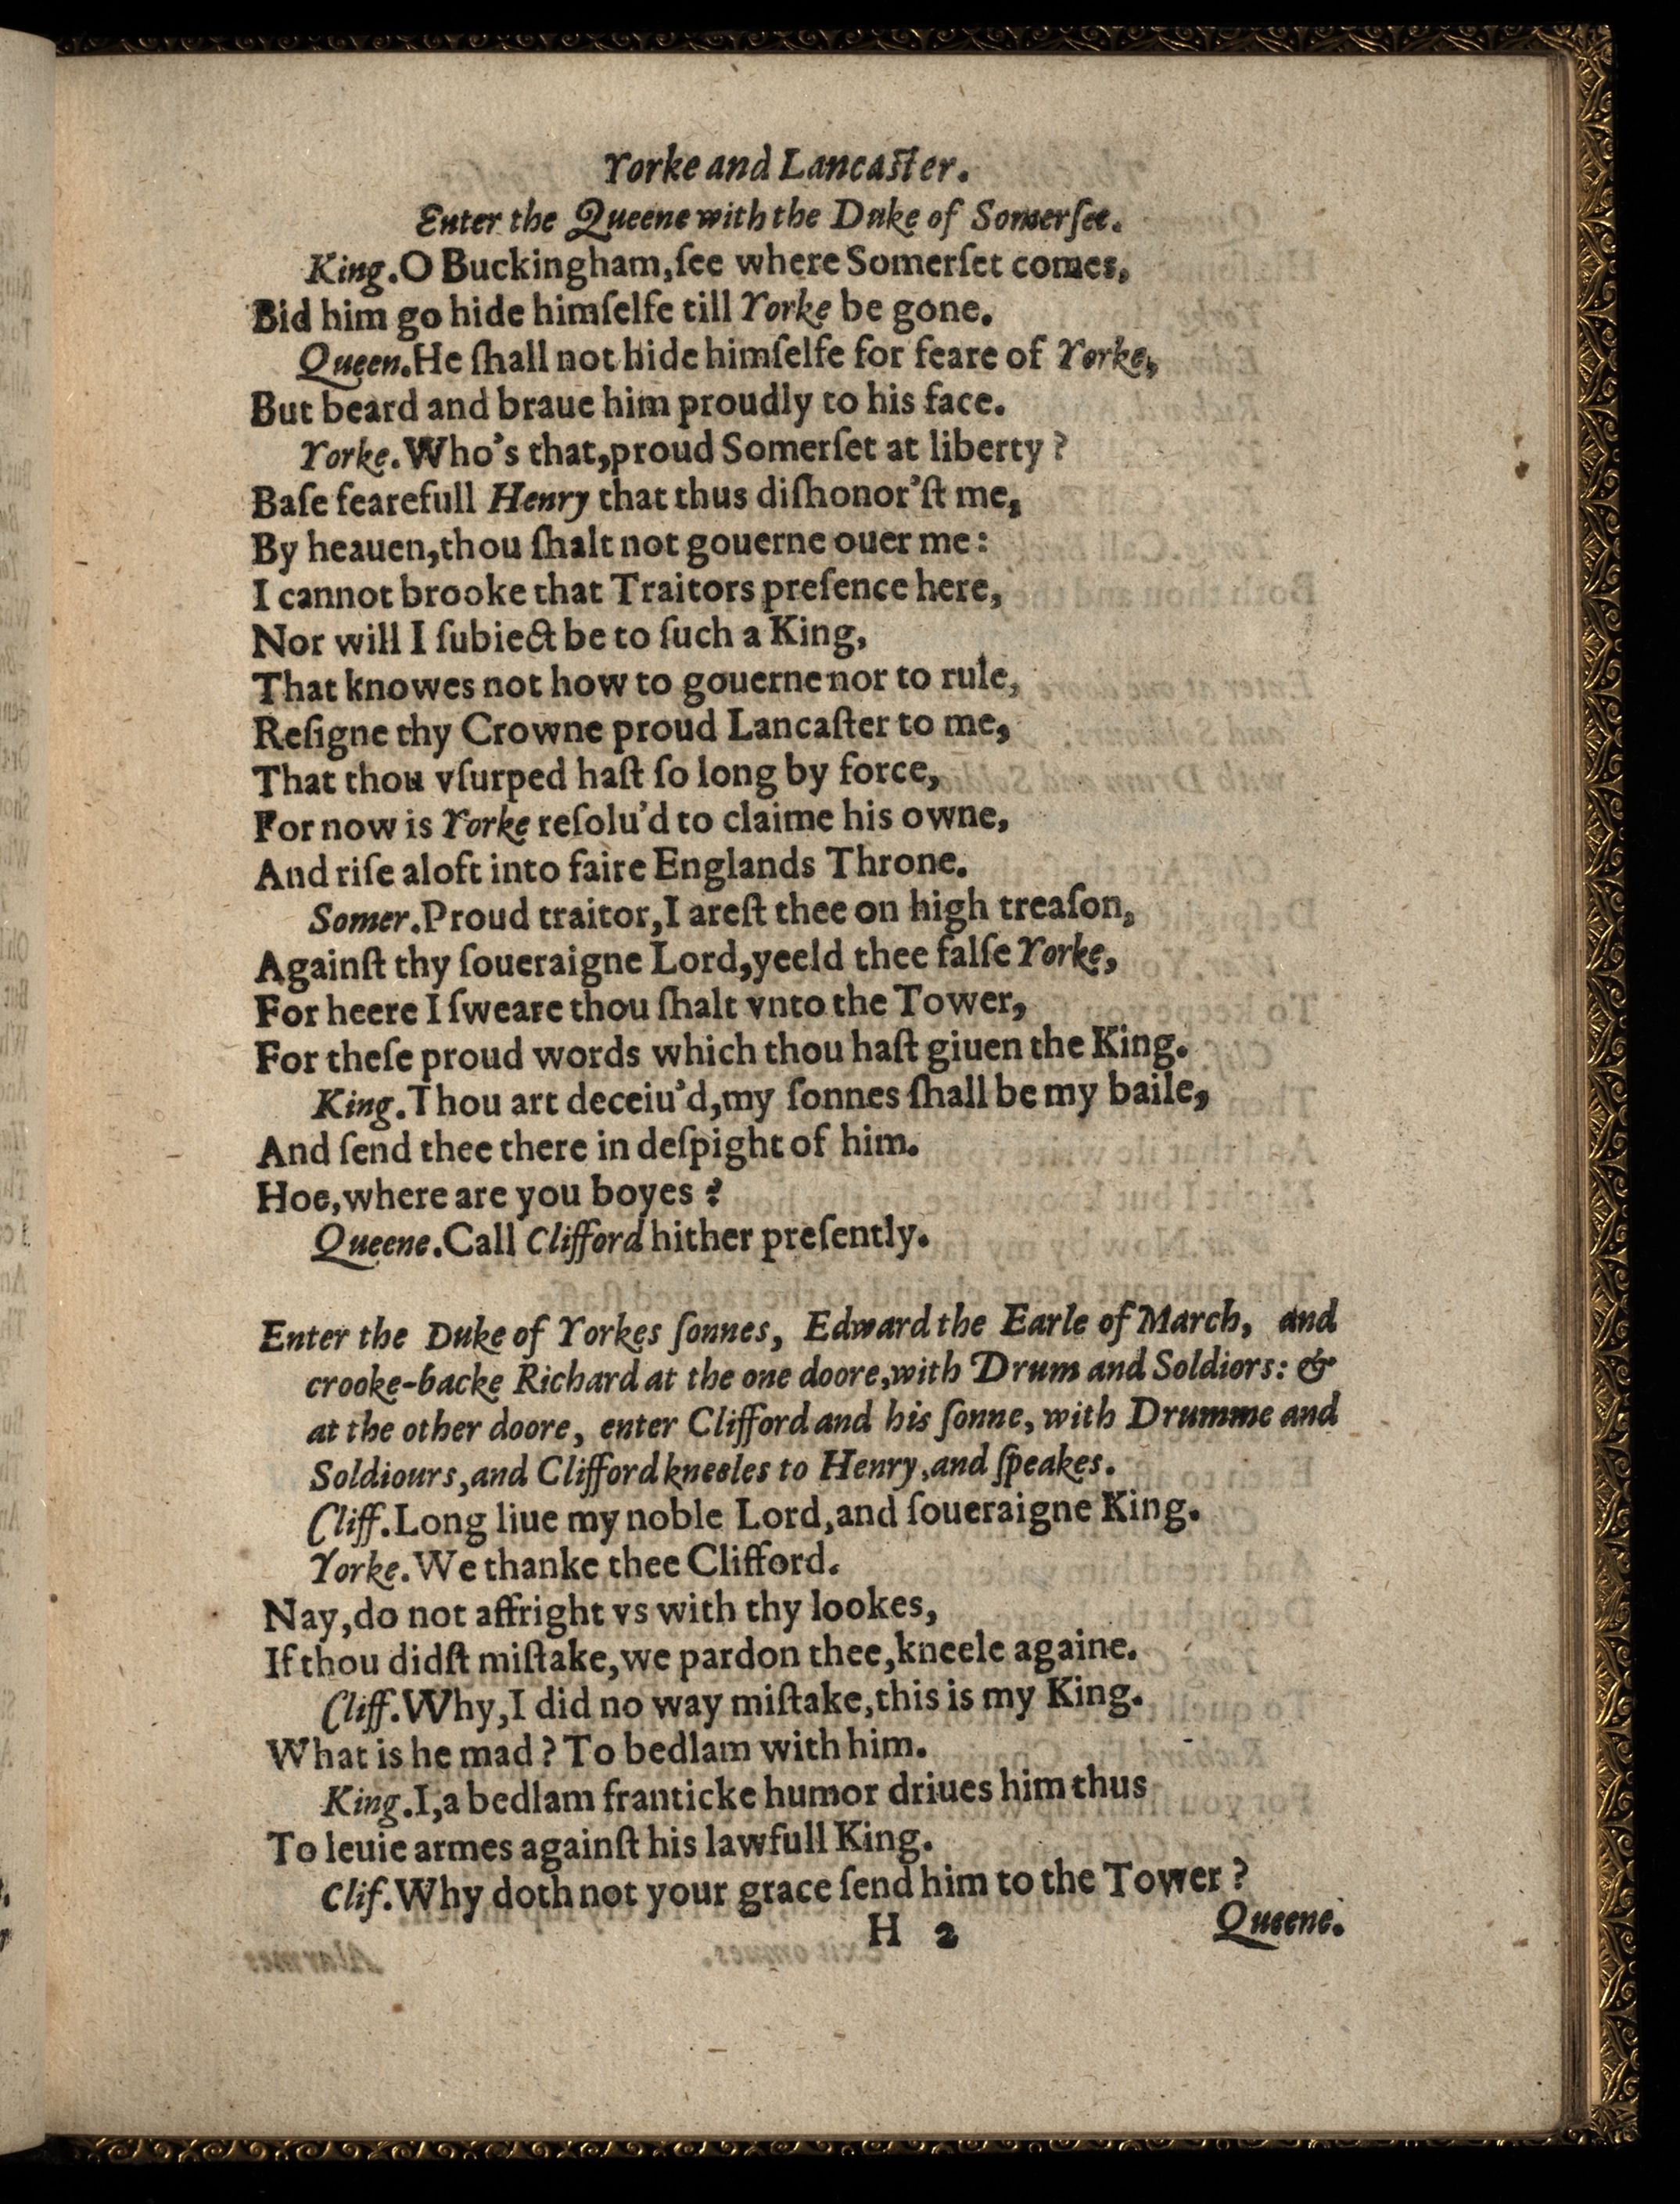 Yorke and Lancaſter.
Enter the Queene with the Duke of Somerſet.
King.O Buckingham,ſee where Somerſet comes,
Bid him go hide himſelfe till Yorke be gone.
Queen.He ſhall not hide himſelfe for feare of Yorke,
But beard and braue him proudly to his face.
Yorke.Who's that,proud Somerſet at liberty ?
Baſe fearefull Henry that thus diſhonor'ſt me,
By heauen,thou ſhalt not gouerne ouer me:
I cannot brooke that Traitors preſence here,
Nor will I ſubiect be to ſuch a King,
That knowes not how to gouerne nor to rule,
Reſigne thy Crowne proud Lancaſter to me,
That thou vſurped haſt ſo long by force,
For now is Yorke reſolu'd to claime his owne,
And riſe aloft into faire Englands Throne.
Somer.Proud traitor,I areſt thee on high treaſon,
Againſt thy ſoueraigne Lord,yeeld thee falſe Yorke,
For heere I ſweare thou ſhalt vnto the Tower,
For theſe proud words which thou haſt giuen the King.
King.Thou art deceiu'd,my ſonnes ſhall be my baile,
And ſend thee there in deſpight of him.
Hoe,where are you boyes ?
Queene.Call Clifford hither preſently.
Enter the Duke of Yorkes ſonnes, Edward the Earle of March, and
crooke-backe Richard at the one doore,with Drum and Soldiors: &
at the other doore, enter Clifford and his ſonne, with Drumme and
Soldiours,and Clifford kneeles to Henry,and ſpeakes.
Cliff.Long liue my noble Lord,and ſoueraigne King.
Yorke.We thanke thee Clifford.
Nay,do not affright vs with thy lookes,
If thou didſt miſtake,we pardon thee,kneele againe.
Cliff.Why,I did no way miſtake,this is my King.
What is he mad ? To bedlam with him.
King.I,a bedlam franticke humor driues him thus
To leuie armes againſt his lawfull King.
Clif.Why doth not your grace ſend him to the Tower ?
H 2 Queene.